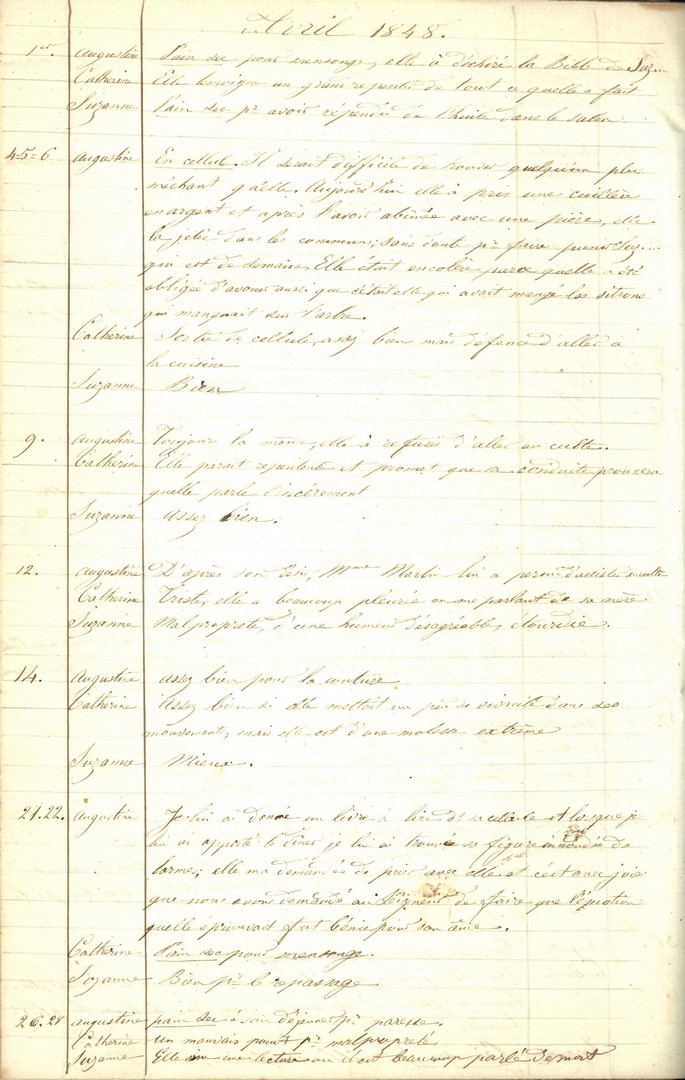 Avril 1848.
1er. Augustine Pain sec pour mensonge, elle à déchiré la Bible de Suz...
Catherine Elle témoigne un grand repentir de tout ce quelle a fait
Suzanne Pain sec pr avoir répendu de l'huile dans le salon
4 5=6 Augustine En cellule. Il serait difficile de trouver quelqu'un plus
méchant qu'elle. Aujourd'hui elle à pris une cuillère
en argent et après l'avoir abîmée avec une pière, elle
la jetée dans les communs; sans doute pr faire punir Suz....
qui est de semaine. Elle était en colère parce quelle a été
obligée d'avouer aussi que c'était elle qui avait mangé les citrons
qui manquait sur l'arbre.
Catherine Sortie de cellule, assez bien mais défence d'aller à
la cuisine
Suzanne Bien
9. Augustine Toujours la même, elle à refusé d'aller au culte.
Catherine Elle parait repentente et promet que sa conduite prouvera
quelle parle sincèrement
Suzanne Assez bien.
12. Augustine D'après son désir, Mme Martin lui a permi d'assister au culte
Catherine Triste, elle a beaucoup pleurée en me parlant de sa mère
Suzanne Malpropreté, d'une humeur désagréable, étourdie.
14. Augustine Assez bien pour la couture
Catherine Assez bien si elle mettait un peu de vivacité dans ses
mouvements, mais elle est d'une molesse extrême
Suzanne Mieux.
21.22. Augustine Je lui ai donné un livre à lire dé sa cellule et lorsque je
lui ai apporté le dîner je lui ai trouvée sa figure innondée de
larmes; elle m'a demandée de prier avec elle et c'est avec joie
que nous avons demandé au Seigneur de faire que l'émotion
quelle éprouvait fut bénie pour son âme.
Catherine Pain sec pour mensonge.
Suzanne Bien pr le repassage.
26.27 Augustine pain sec à son déjeuner pr paresse.
Catherine un mauvais point pr malpropreté
Suzanne Elle une lecture ou il est beaucoup parlé de mort